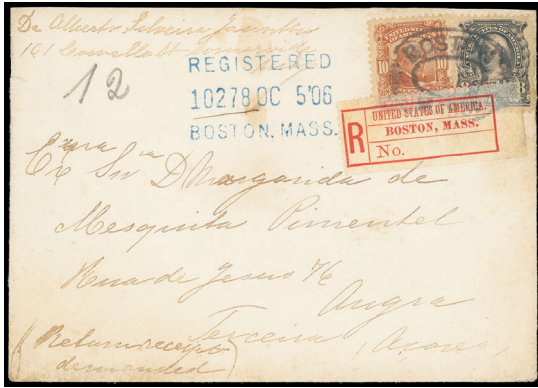 De Alberto Silveira
161 Lowell St Somerville
12
REGISTERED
10278 OC 5'06
BOSTON, MASS.
10
10
BOSTON
UNITED STATES OF AMERICA.
BOSTON, MASS.
R
No.
Exma Sra D Margarida de
Mesquita Pimentel
Rua de Jesus
Angra
Terceira
Açores
(Return receipt
demanded)